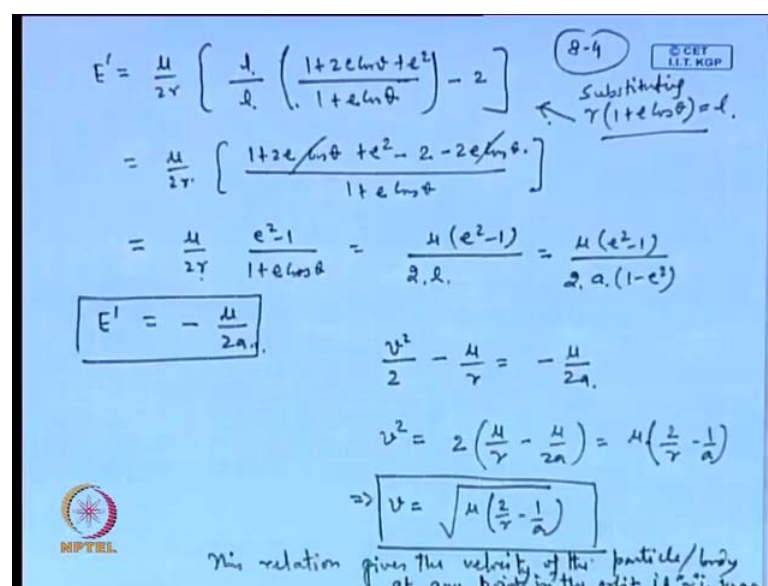 E' = μ/2r [ l/l ( (1+2e cosθ+e²) / (1+e cosθ) ) - 2 ]
8-4
© CET
I.I.T. KGP
Substituting
r(1+e cosθ) = l.
= μ/2r [ (1+2e cosθ +e² - 2 - 2e cosθ.) / (1+e cosθ) ]
= μ/2r (e²-1)/(1+e cosθ) = μ(e²-1)/2.l. = μ(e²-1)/2.a.(1-e²)
E' = - μ/2a.
v²/2 - μ/r = - μ/2a.
v² = 2(μ/r - μ/2a) = μ(2/r - 1/a)
=> v = √μ(2/r - 1/a)
NPTEL
This relation gives the velocity of the particle/body
at any point in the orbit if "a" was